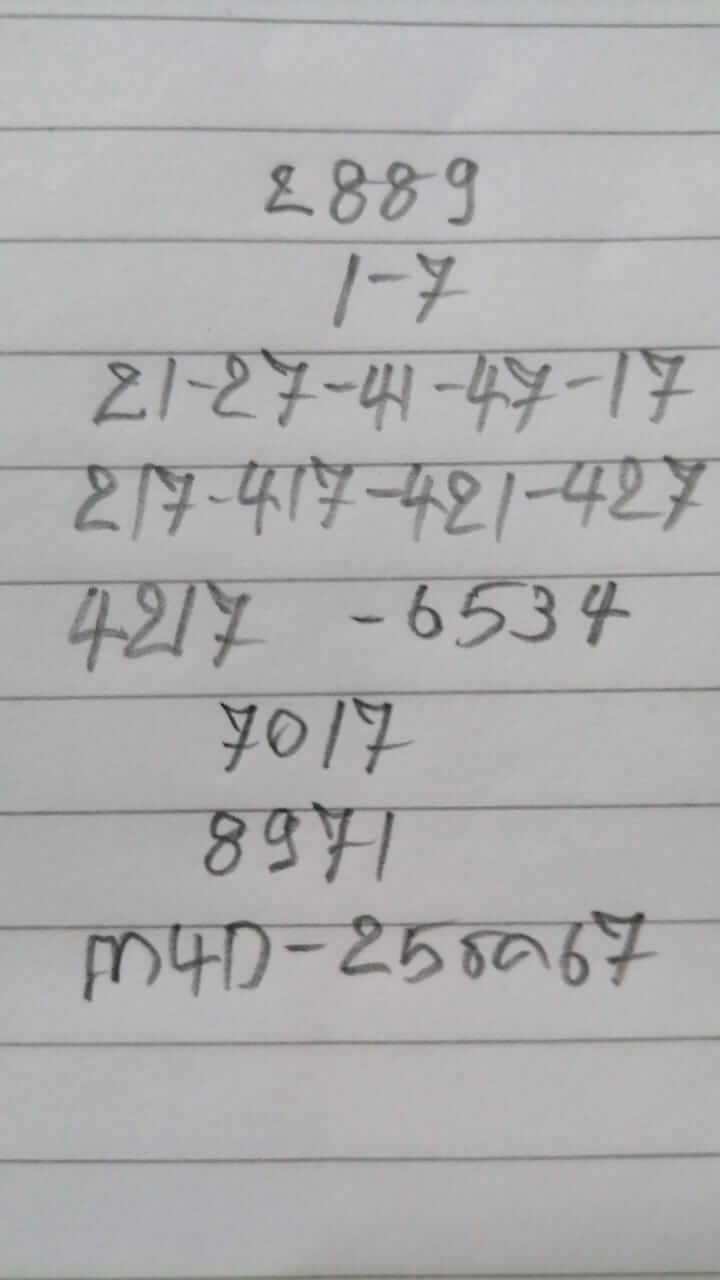 2889
1-7
21-27-41-47-17
217-417-421-427
4217 -6534
7017
8971
M4D-25ธค67